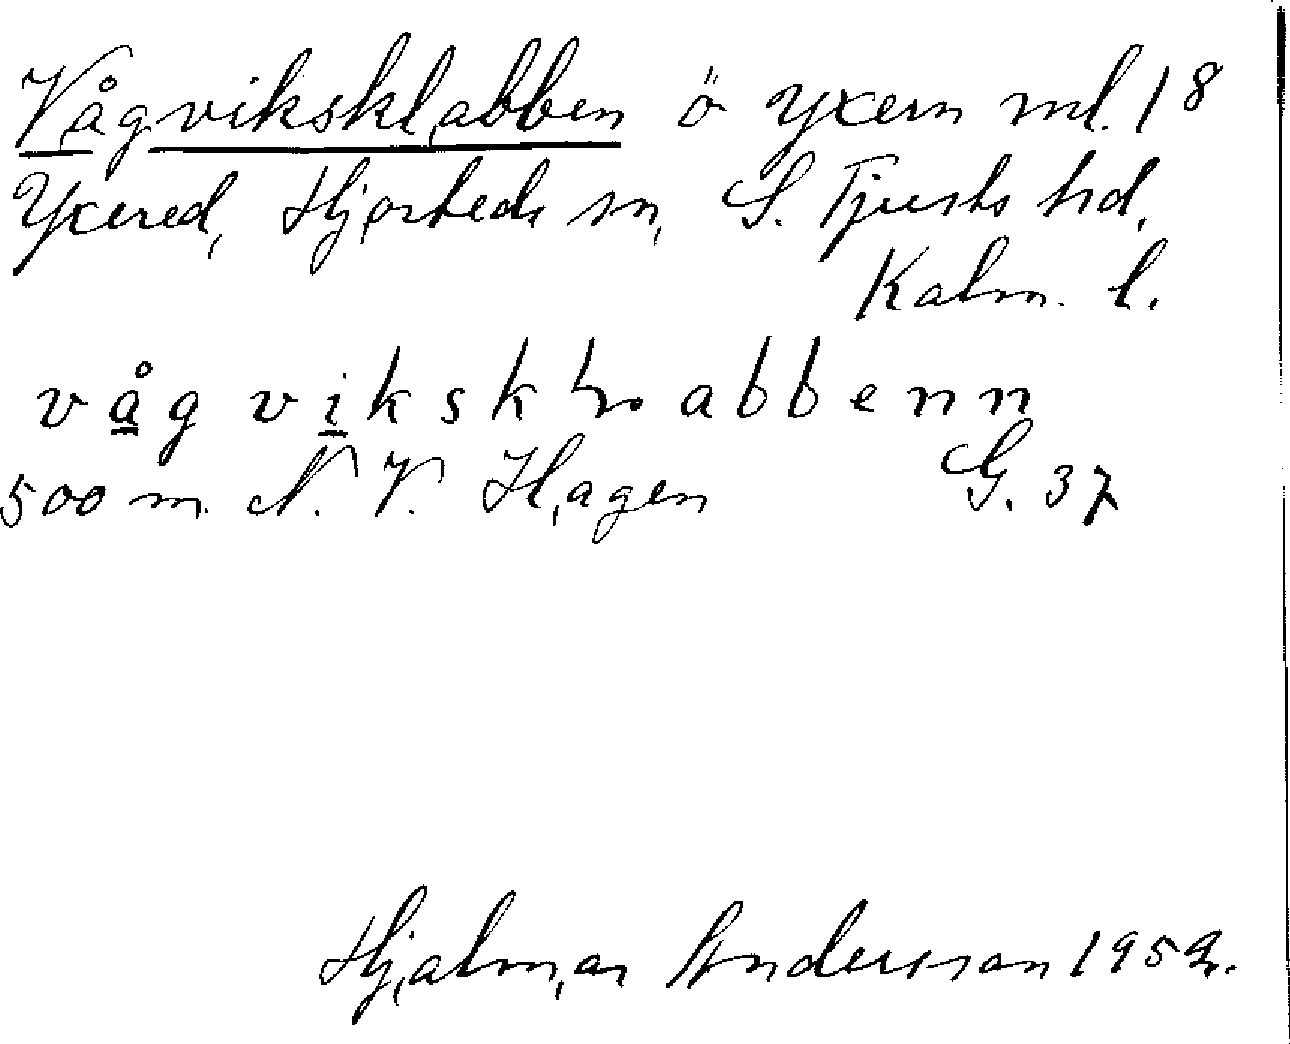 Vågviksklabben ö Yxern ml. 18
Yxered, Hjorteds sn, S. Tjusts hd,
Kalm. l.
våg viksk abbenn
500 m. N. V. Hagen G. 37
Hjalmar Andersson 1952.